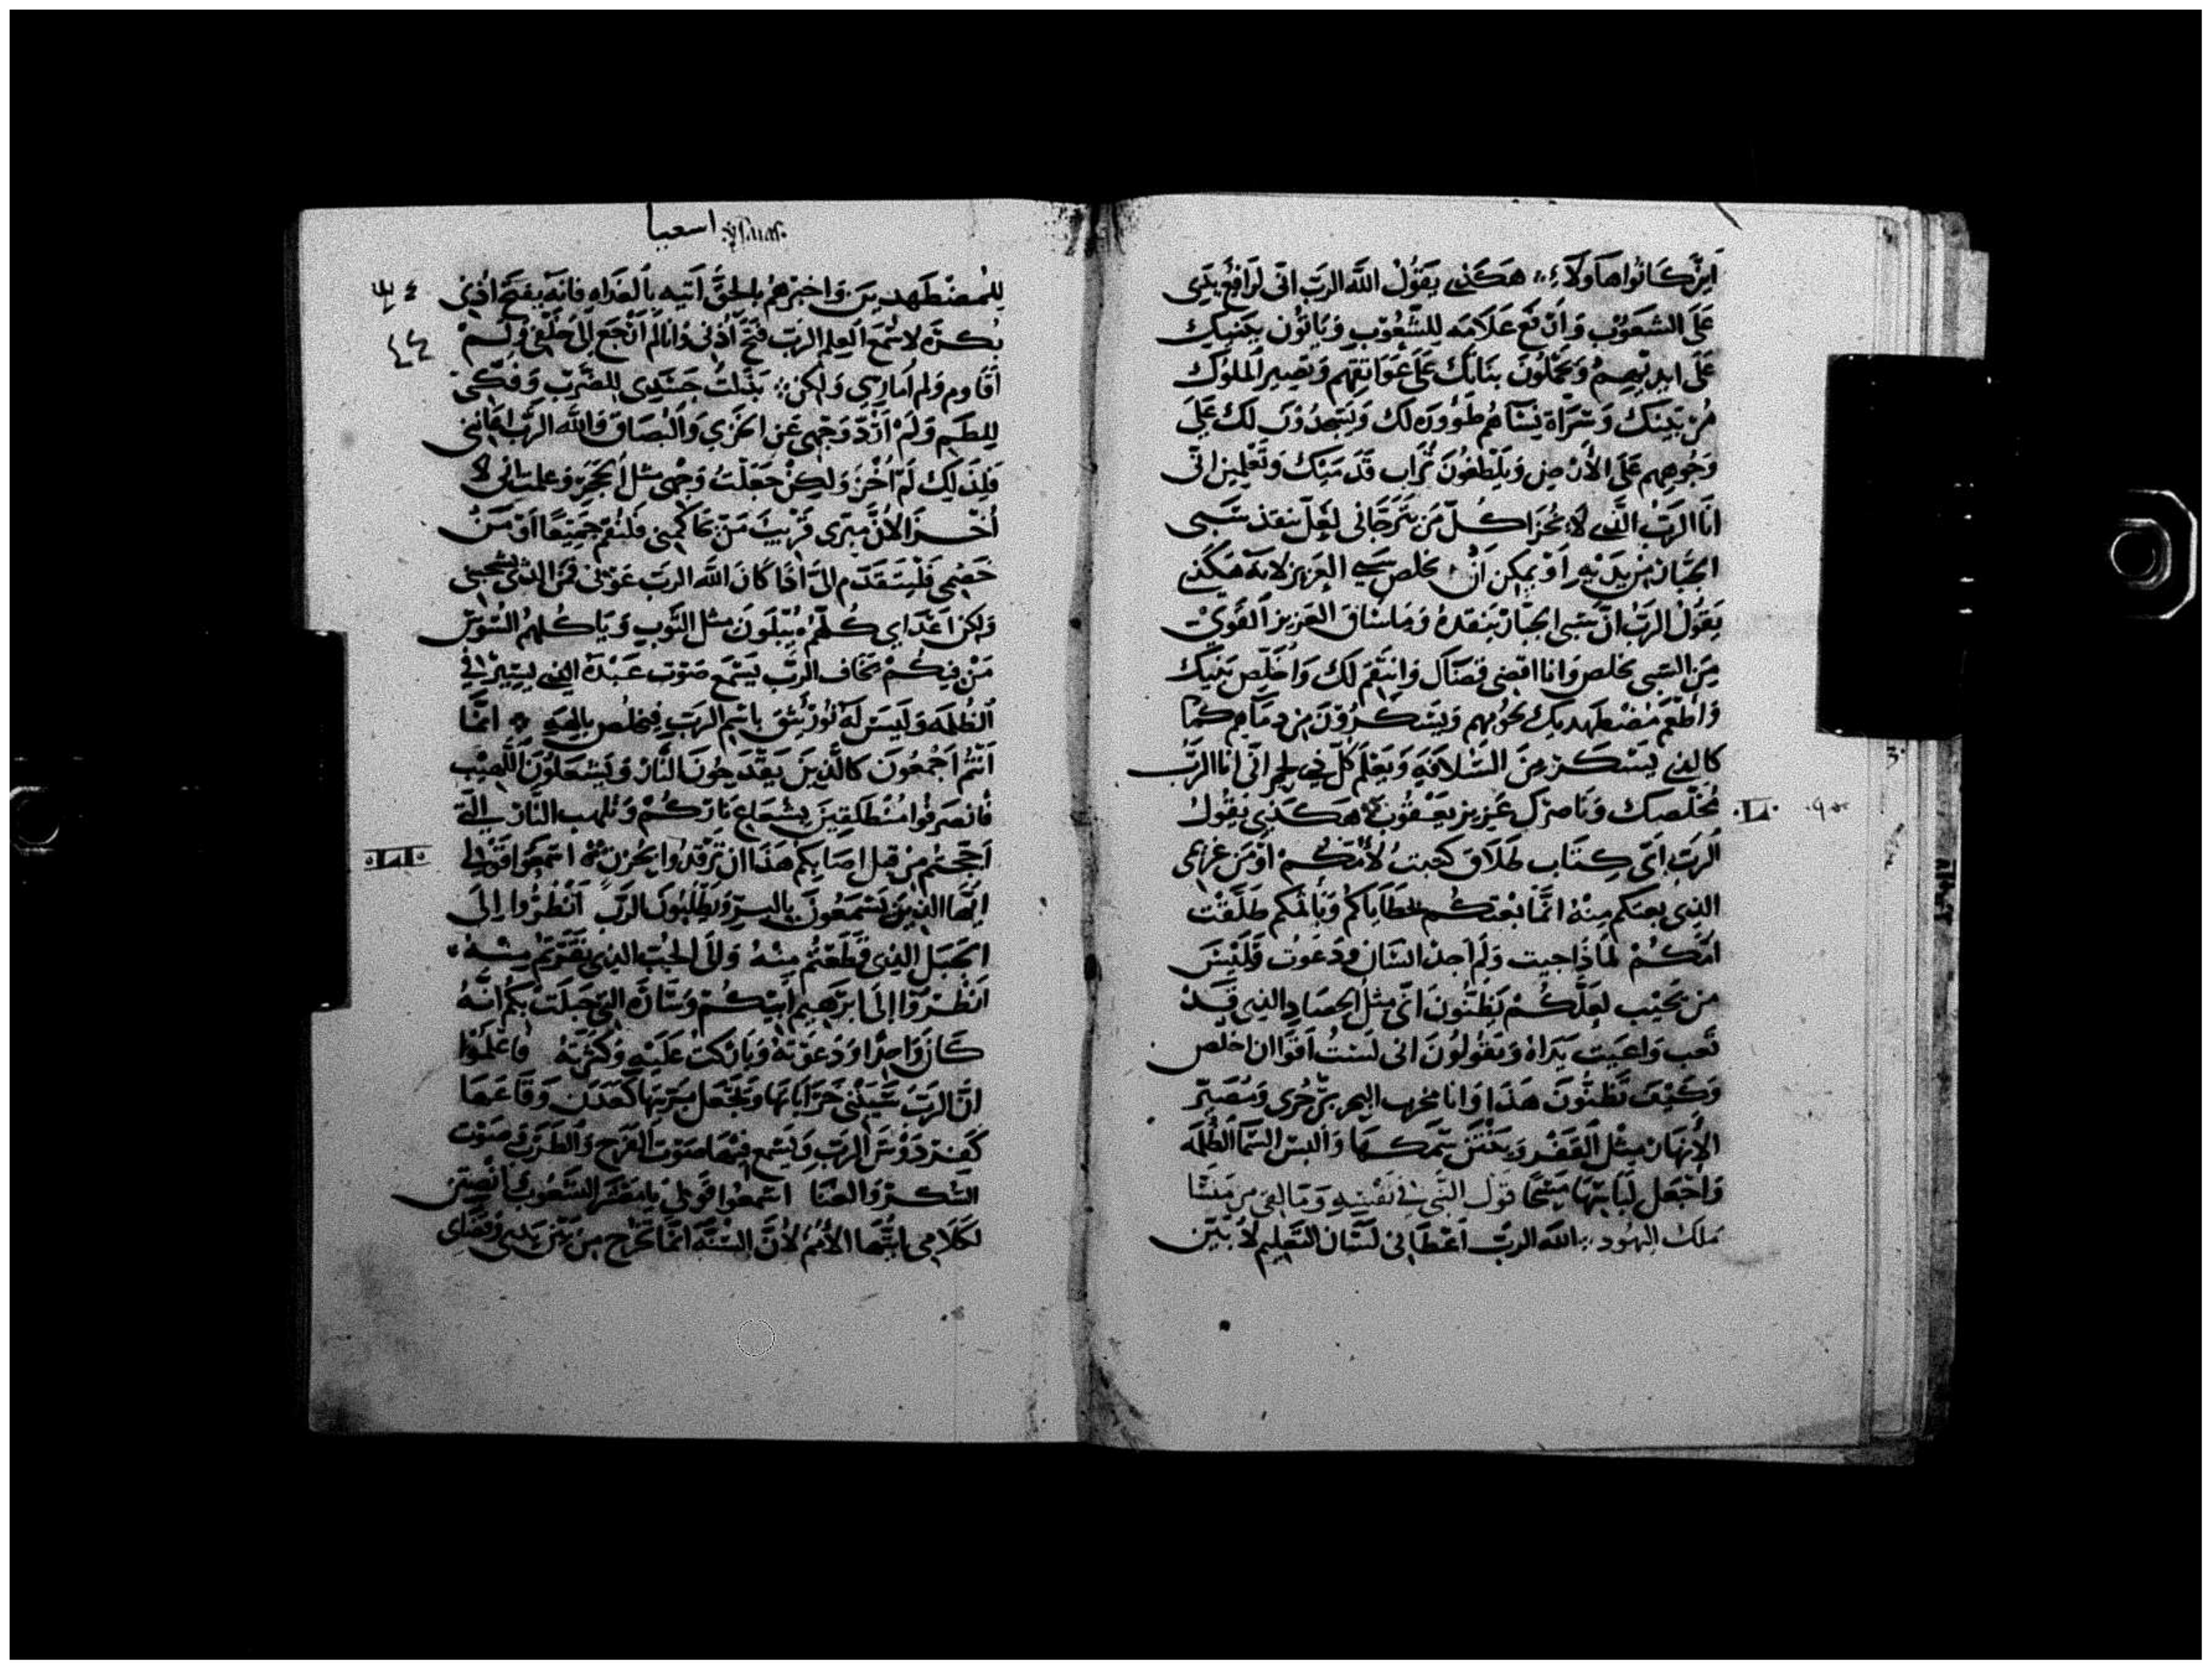 اين كانوا هاولاء هكذي يقول الله الرب اني لرافع يدي
على الشعوب وارفع علامه للشعوب وياتون ببنيك
على ايديهم ويحملون بناتك على عواتقهم وتصير الملوك
وشراة نساهم لك ويسجدون لك على
وجوههم على الارض ويلطعون تراب قدميك وتعلمين اني
انا الرب الذي لا يخزا كل من يترجاني لعل ينقذ سبي
الجبار من يديه او يمكن ان يخلص سبي العزيز لانه هكذي
يقول الرب ان سبي الجبار ينقذه وما ساق العزيز القوي
من السبي يخلص وانا اقضي قضاك وانتقم لك واخلص بنيك
واطعم مضطهديك لحومهم ويسكرون من دماهم كما
كالذي يسكر من السلافه ويعلم كل ذي لحم اني انا الرب
مخلصك وناصرك عزيز يعقوب هكذي يقول
الرب اي كتاب طلاق كتبت لامكم او من غريمي
الذي بعتكم منه انما بعتكم لخطاياكم وباثمكم طلقت
امكم لماذا جيت ولم اجد انسان ودعوت وليس
من يجيب لعلكم تظنون اني مثل الحصاد الذي قد
تعب واعيت يداه وتقولون اني لست اقوا ان اخلص
وكيف تظنون هذا وانا مخرب البحر بزجري ومصير
الانهار مثل القفر وينتن سمكها والبس السما الظلمه
واجعل لباسها مسحا قول النبي في نفسيه وما لقي من منسا
ملك اليهود الله الرب اعطاني لسان التعليم لابين
اسعيا
للمضطهدين واخبرهم بالحق اتيه بالغداه فانه يفتح اذني
بكره لاسمع العلم الرب فتح اذني وانا لم ارجع الى خلفي ولم
اقاوم ولم اماري ولكن بذلت جسدي للضرب وفكي
للطم ولم ارد وجهي عن الخزي والبصاق والله الرب اعانني
فلذلك لم اخز ولكن جعلت وجهي مثل الحجر وعلمت اني لا
اخزا لان مبري قريب من يحاكمني فلنقم جميعا او من
خصمي فليتقدم الي اذا كان الله الرب عوني فمن الذي
ولكن اعداي كلهم يبلون مثل الثوب وياكلهم السوس
من فيكم يخاف الرب يسمع صوت عبده الذي يسير في
الظلمه وليس له نور يثق باسم الرب فيخلص بالهيه انما
انتم اجمعون كالذين يقدحون النار ويشعلون اللهيب
فانصرفوا منطلقين بشعاع ناركم وتلهب النار التي
اججتم من قبل اصابكم هذا ان ترقدوا بحزن اسمعوا قولي
ايها الذين يسمعون بالبر ويطلبون الرب انظروا الى
الجبل الذي قطعتم منه والى الجب الذي نقرتم منه
انظروا الى ابرهيم ابيكم وساره التي حبلت بكم انه
كان واحدا ودعوته وباركت عليه وكثرته فاعلموا
ان الرب سيبني خراباتها ويجعل بريتها كعدن وقاعها
كفردوس الرب ويسمع فيها صوت الفرح والطرب وصوت
الشكر والغنا اسمعوا قولي يا معشر الشعوب انصتن
لكلامي ايتها الامم لان السنه انما تخرج من بين يدي وقضاي